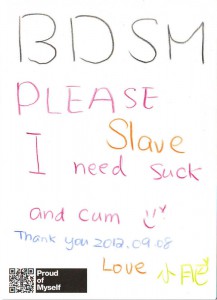 BDSM
PLEASE
Slave
I need suck
and cum
Thank you 2012.09.08
Love 小
Proud
of
Myself